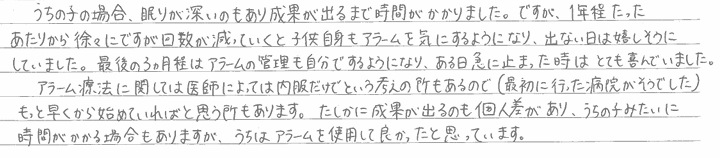 うちの子の場合、眠りが深いのもあり成果が出るまで時間がかかりました。ですが、1年程たった
あたりから徐々にですが回数が減っていくと子供自身もアラームを気にするようになり、出ない日は嬉しそうに
していました。最後の3ヵ月程はアラームの管理も自分でするようになり、ある日急に止まった時はとても喜んでいました。
アラーム療法に関しては医師によっては内服だけでという考えの所もあるので(最初に行った病院がそうでした)
もっと早くから始めていればと思う所もあります。たしかに成果が出るのも個人差があり、うちの子みたいに
時間がかかる場合もありますが、うちはアラームを使用して良かったと思っています。